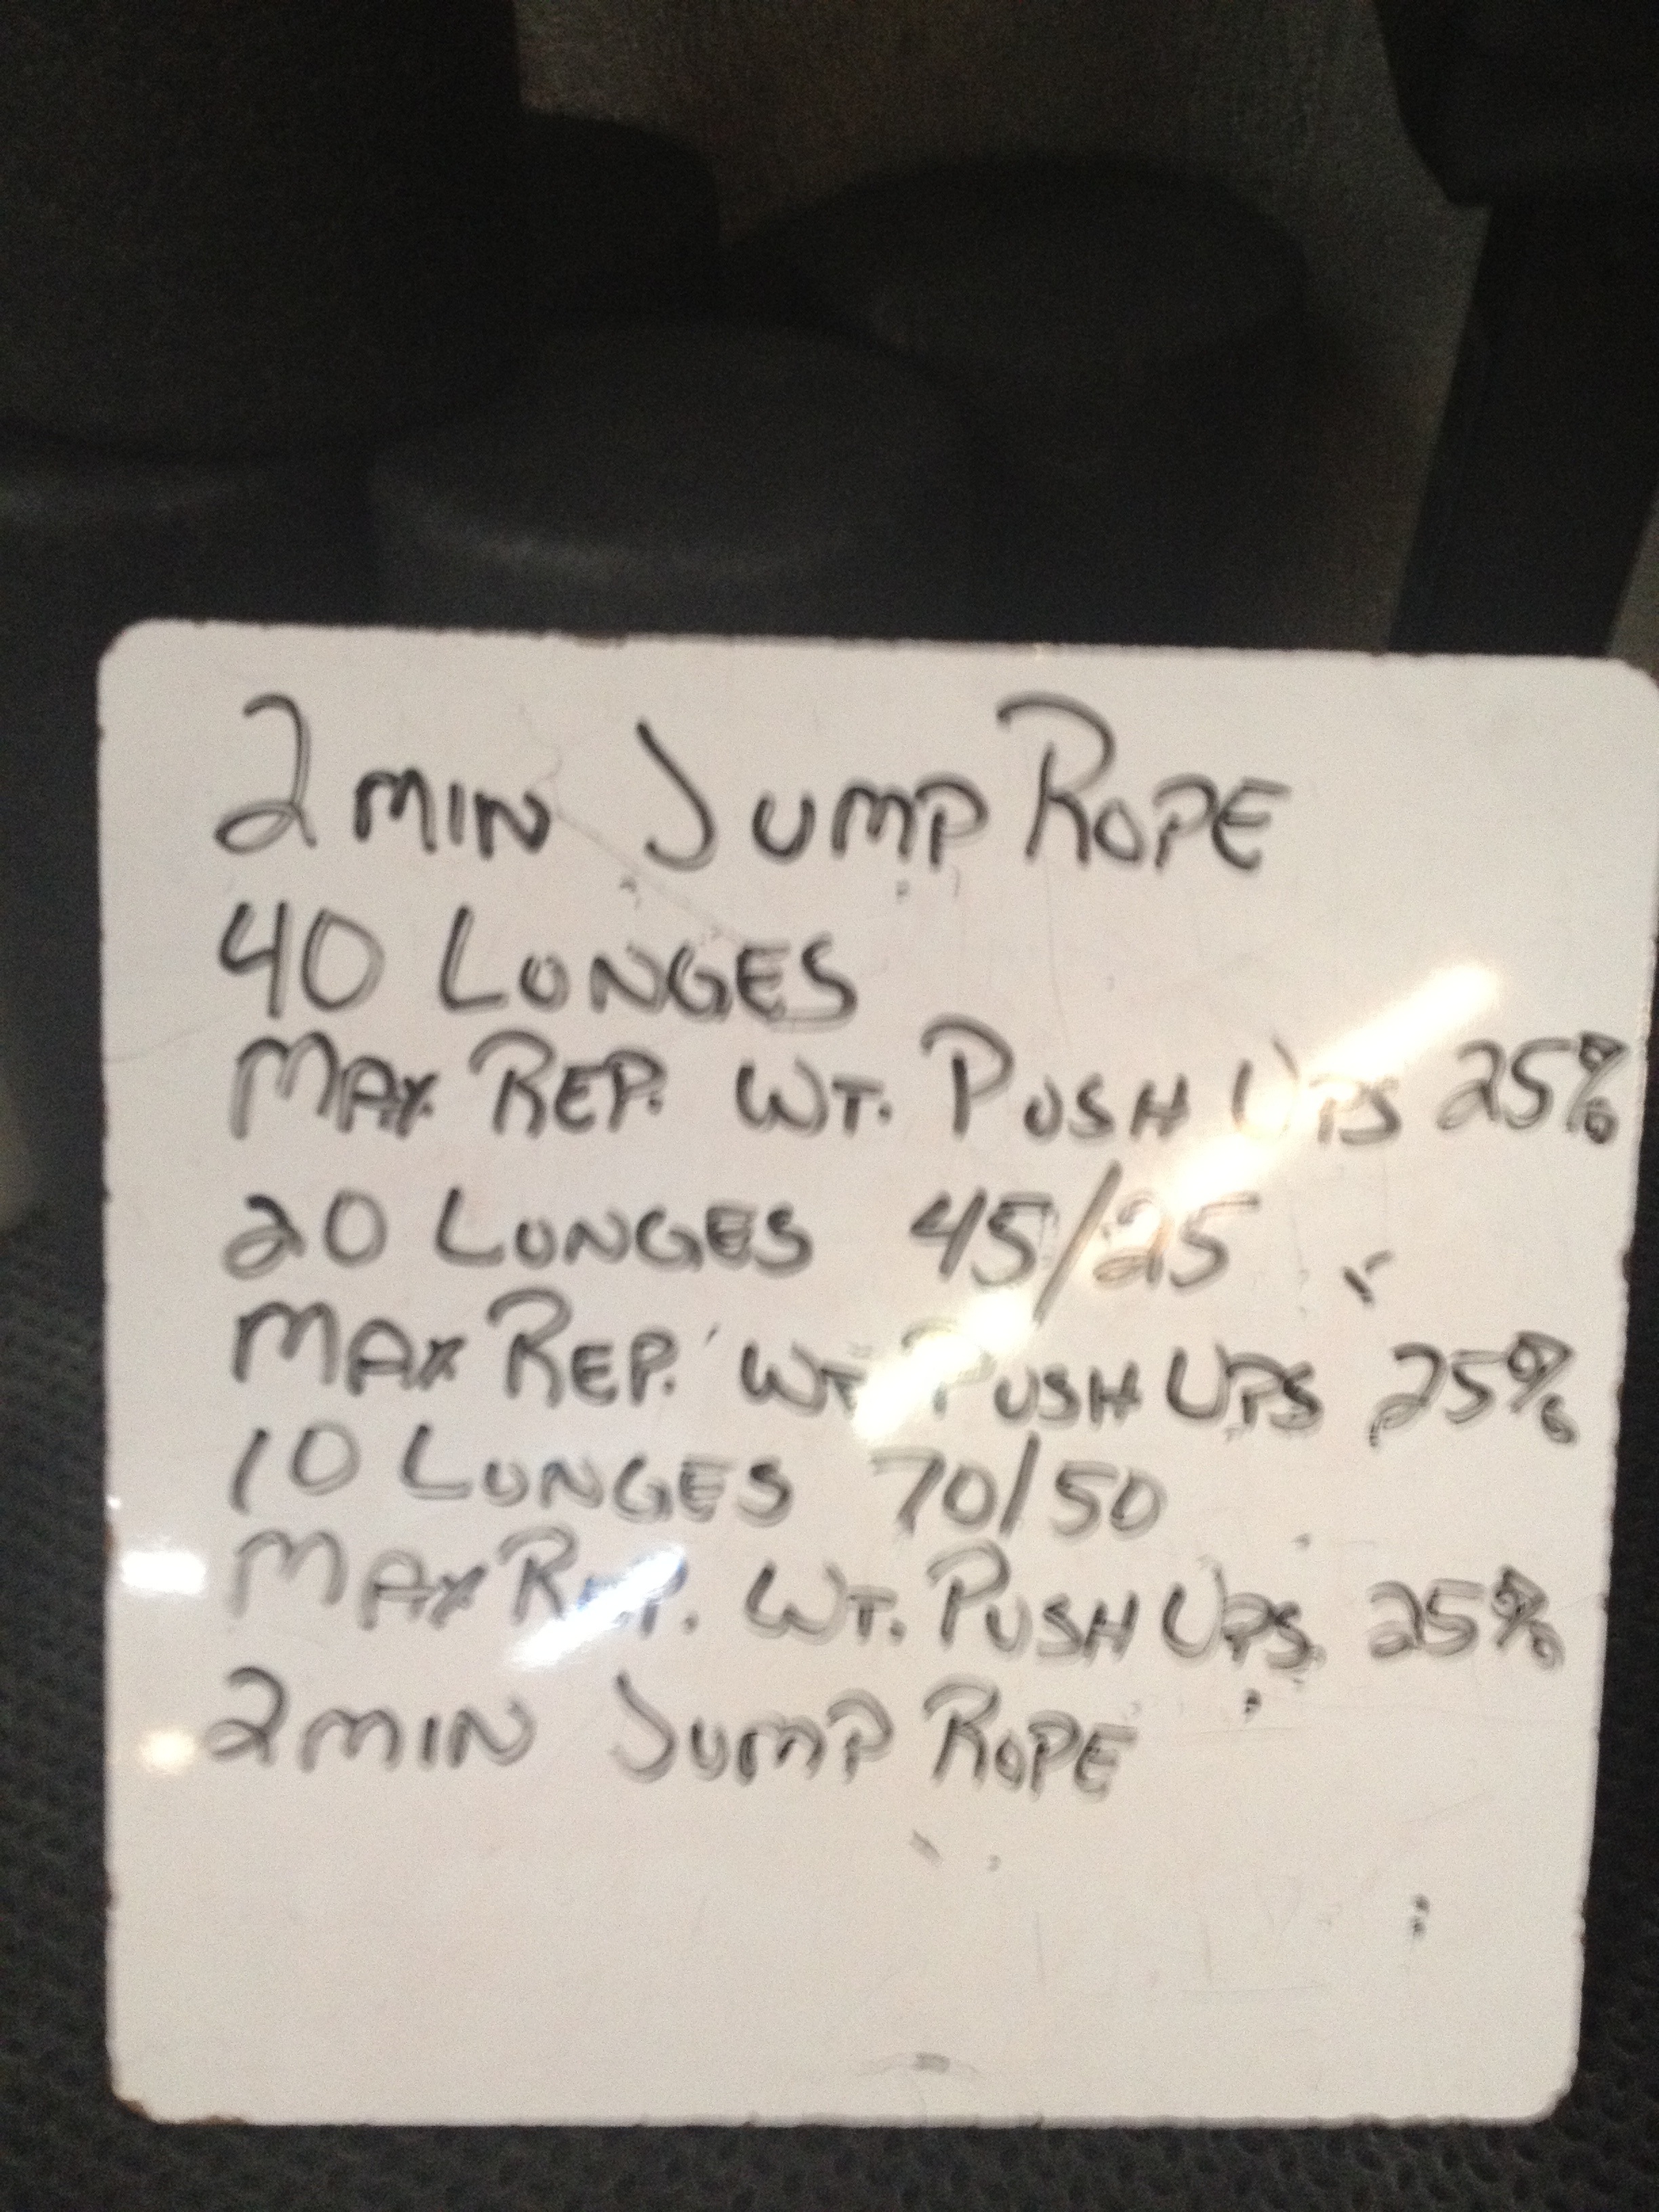 2 MIN JUMP ROPE
40 LUNGES
MAX REP. WT. PUSH UPS 25%
20 LUNGES 45/25
MAX REP. WT. PUSH UPS 25%
10 LUNGES 70/50
MAX REP. WT. PUSH UPS 25%
2 MIN JUMP ROPE